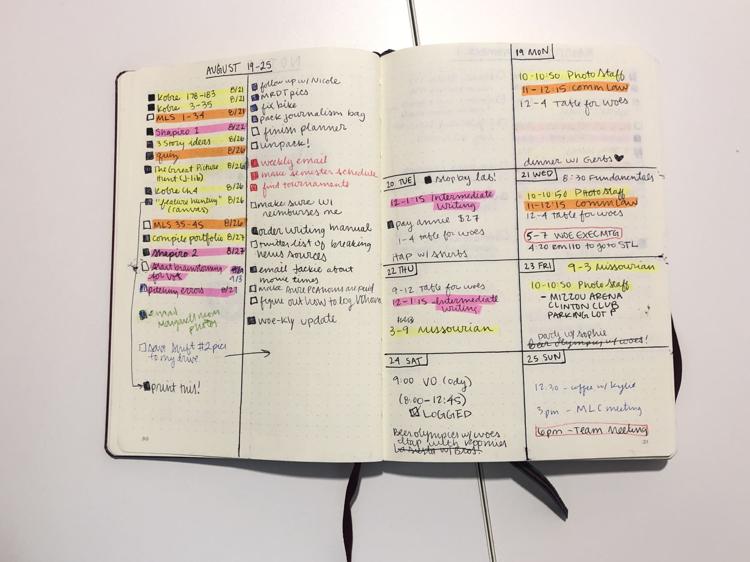 AUGUST 19-25
Kobre 178-183 8/21
Kobre 3-35 8/21
MLS 1-34 8/21
Shapiro 1 8/22
3 Story ideas 8/26
quiz 8/26
The Great Picture 8/26
Hunt (J-lib)
Kobre Ch 1 8/26
"feature hunting" 8/26
(canvas)
MLS 35-45 8/26
compile portfolio 8/27
Shapiro 2 8/27
start brainstorming
for 9/3
pitching errors 8/27
email
photos
save shift #2 pics
to my drive
print this!
follow up w/ Nicole
MRDT pics
fix bike
pack journalism bag
finish planner
unpack!
weekly email
make semester schedule
find tournaments
make sure WI
reimburses me
order writing manual
twitter list of breaking
news sources
email Jackie about
movie times
make sure
figure out how to log
woe-kly update
19 MON
10-10:50 Photo Staff
11-12:15 Comm Law
12-4 Table for Woes
dinner w/ Gerbs ♥
20 TUE stop by lab!
12-1:15 Intermediate
Writing
pay Annie $27
1-4 table for woes
21 WED 8:30 Fundamentals
10-10:50 Photo Staff
11-12:15 Comm Law
12-4 table for woes
5-7 WOE EXEC MTG
4:20 RM 110 to go to STL
22 THU
9-12 Table for woes
12-1:15 Intermediate
Writing
3-9 Missourian
23 FRI 9-3 Missourian
10-10:50 Photo Staff
- MIZZOU ARENA
CLINTON CLUB
PARKING LOT P
party w/ Sophie
Beer olympics w/ woes!
24 SAT
9:00 VO (Ody)
(8:00-12:45)
LOGGED
Beer olympics w/ woes
dtap with roomies
25 SUN
12:30 - coffee w/ Kylie
3pm - MLC meeting
6pm - Team Meeting
30
31